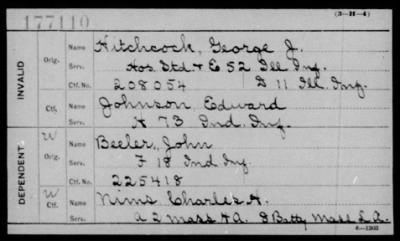 177110
(3—H—4)
INVALID
Orig.
Name Hitchcock, George J.
Serv. Hos. Std. & E 52 Ill Inf.
Ctf. No. 208054 D 11 Ill. Inf.
Ctf.
Name Johnson Edward
Serv. H 73 Ind. Inf.
DEPENDENT.
W
Orig.
Name Beeler, John
Serv. F 18 Ind Inf
Ctf. No. 225418
W
Ctf.
Name Nims Charles H.
Serv. A 2 Mass H A. Batty Mass L. A.
6—1303